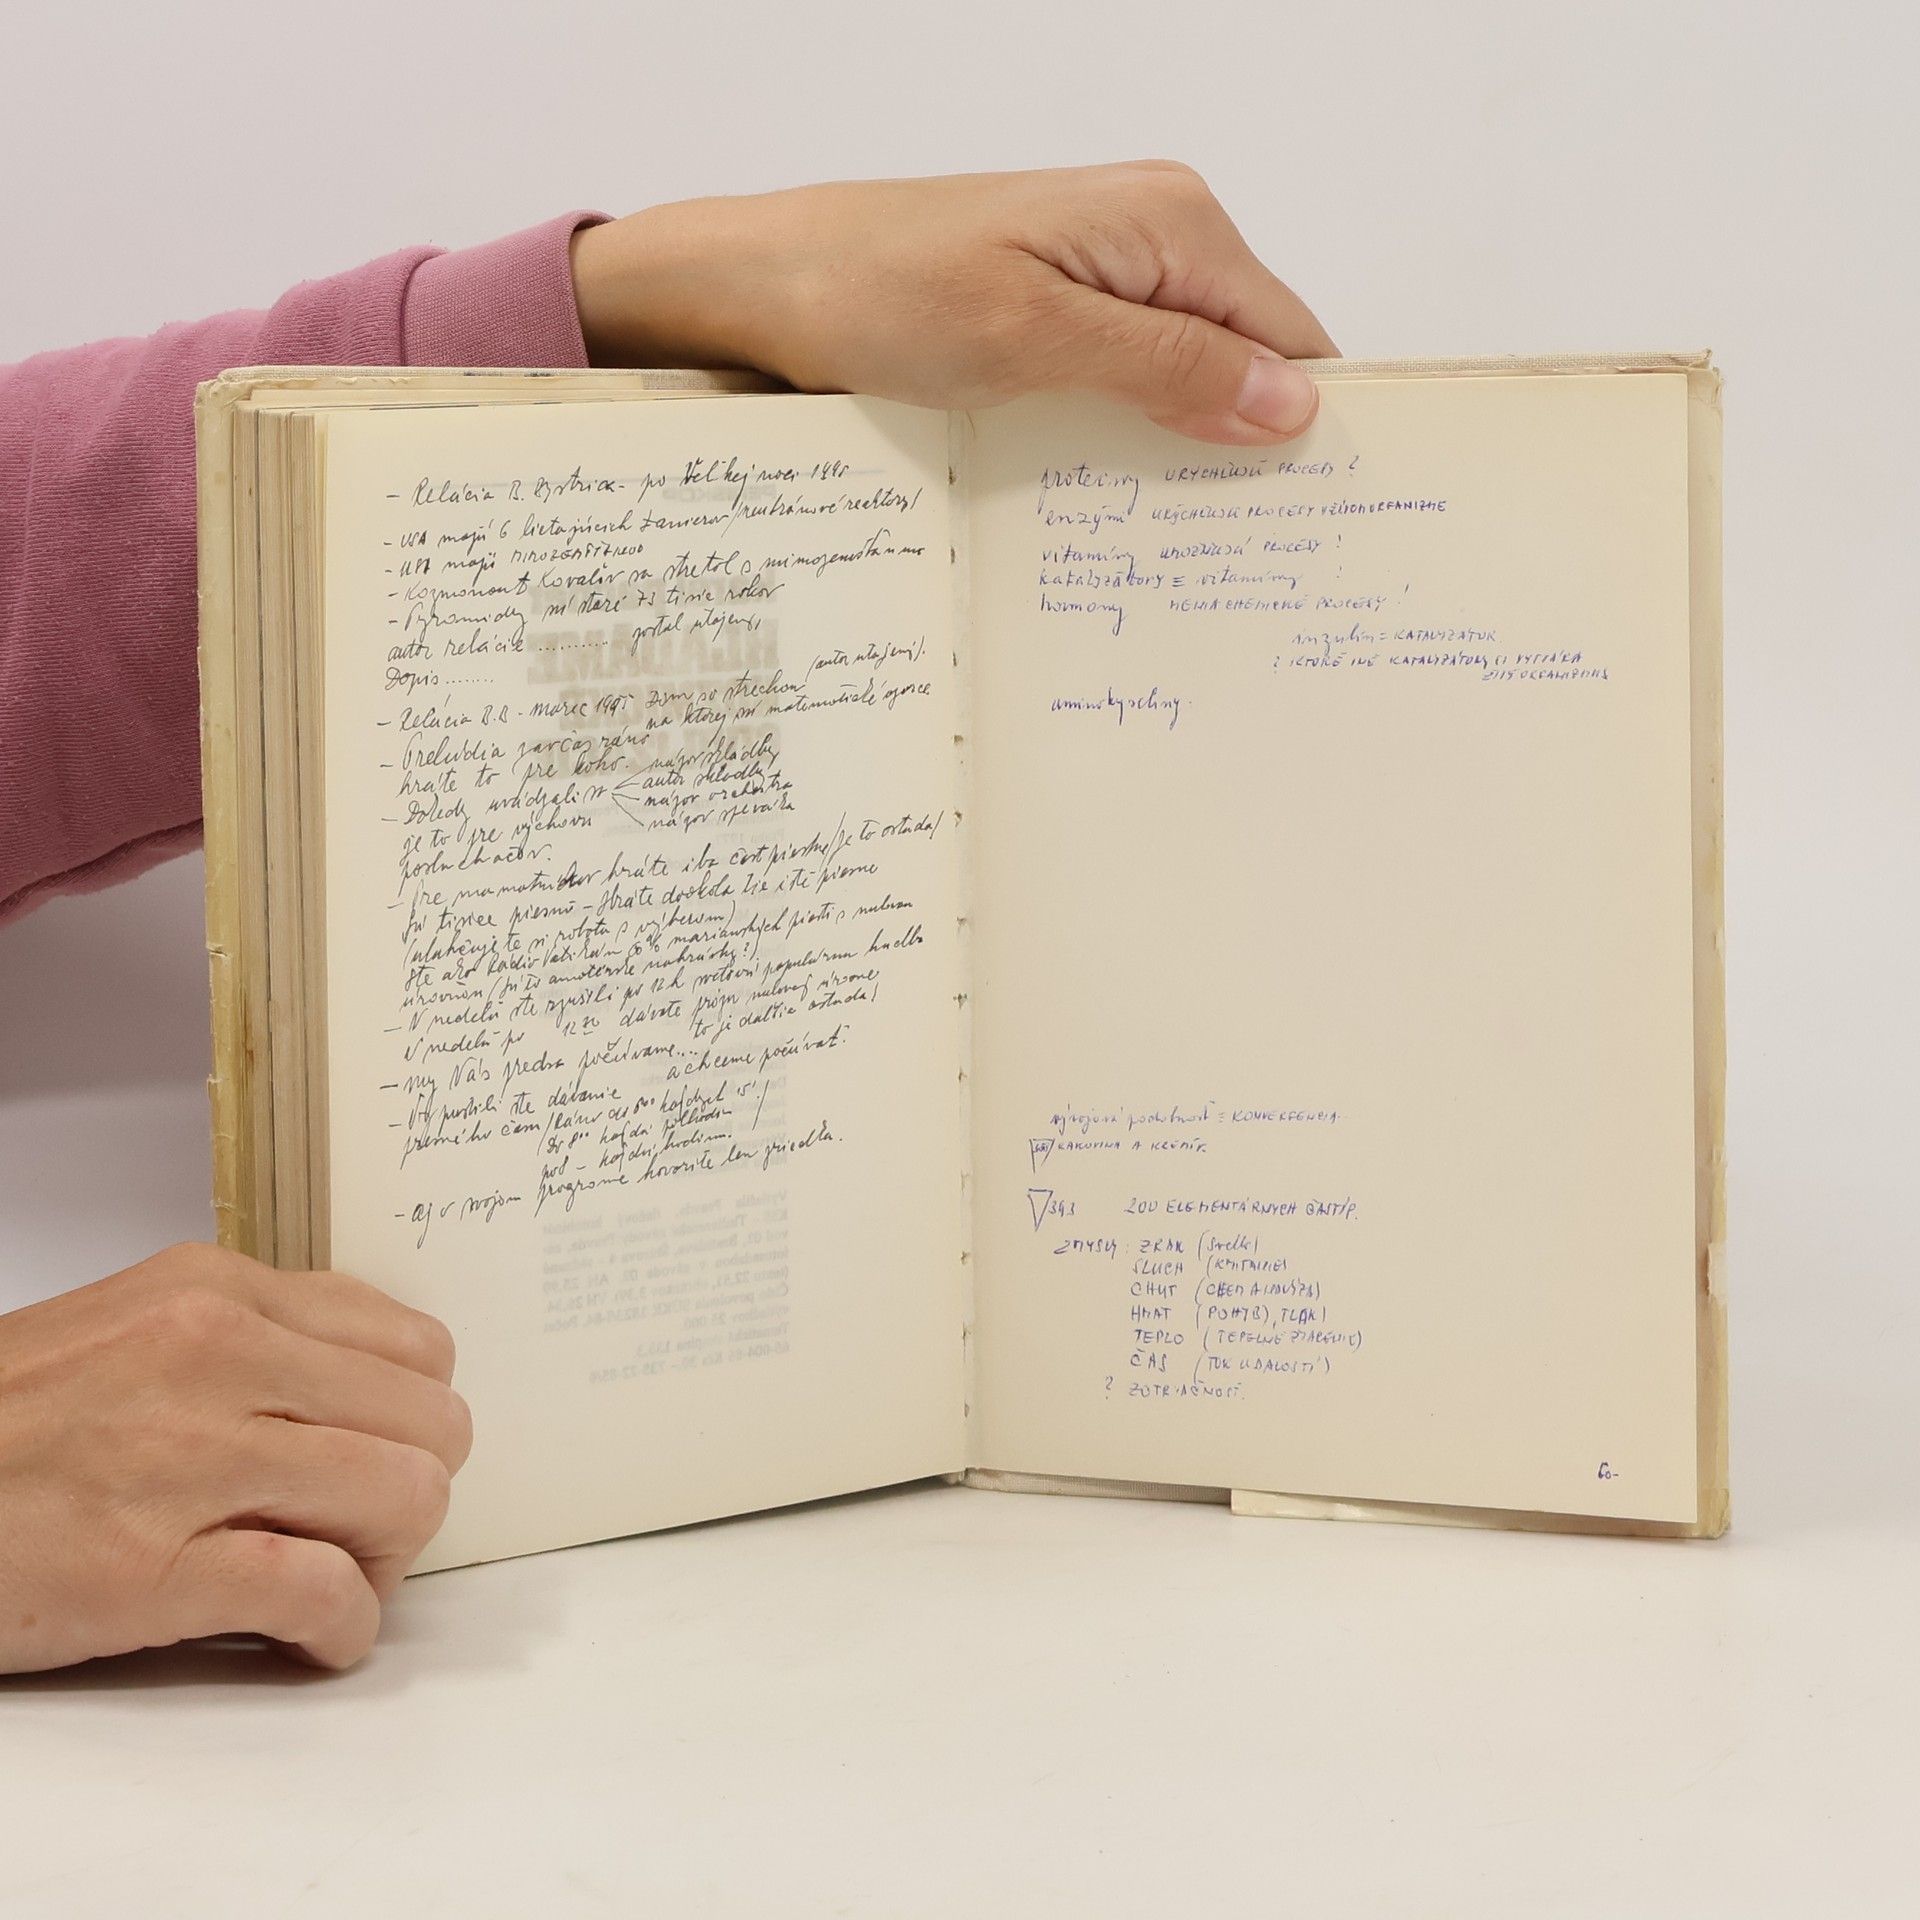 - Relácia B. Bystrica - po Veľkej noci 1995
- USA majú 6 lietajúcich tanierov /neutrónové reaktory/
- USA majú MIMOZEMŠŤANOV
- Kozmonaut Kovaľov sa stretol s mimozemšťanmi
- Pyramídy sú staré 73 tisíc rokov
autor relácie .......... postal utajený
Dopis ........ (autor utajený).
- Relácia B.B - marec 1995 Dom so strechou
na ktorej sú matematické
- Prelúdia zavčas ráno
hráte to pre koho.
- Dokedy uvádzali sa názov skladby
autor skladby
názov orchestra
názov speváka
je to pre výchovu
poslucháčov.
- Pre mamatučkov hráte iba časť piesne /je to ostuda/
Sú tisíce piesní - Hráte dookola tie isté piesne
(uľahčujete si robotu s výberom)
Ste ako Rádio Vatikán 80% mariánskych piesní s nulovou
úrovňou (sú to amatérske nahrávky?)
- V nedeľu ste zrušili po 12 h svetovú populárnu hudbu
V nedeľu po 12 20 dávate nulovej úrovne
to je ďalšia ostuda!
- My Vás predsa počúvame...
a chceme počúvať.
- Vypustili ste dávanie
presného času /Ráno do 8 00 každých 15'
Do 8 00 každú polhodinu
po 8 - každú hodinu. /
- Aj v svojom programe hovoríte len zriedka.
proteiny URÝCHĽUJÚ PROCESY ?
enzými URÝCHĽUJÚ PROCESY V ŽIVOM ORGANIZME
vitamíny UMOŽŇUJÚ PROCESY !
katalyzátory ≡ vitamíny !
hormony MENIA CHEMICKÉ PROCESY !
inzulín = KATALYZÁTOR
? KTORÉ INÉ KATALYZÁTORY SI VYTVÁRA
ŽIVÝ ORGANIZMUS
aminokyseliny.
vývojová podobnosť = KONVERGENCIA.
RAKOVINA A KREMÍK
393 200 ELEMENTÁRNYCH ČASTÍC.
ZMYSLY: ZRAK (svetlo)
SLUCH (KMITANIE)
CHUŤ (CHEM ANALÝZA)
HMAT (POHYB), TLAK)
TEPLO (TEPELNÉ ŽIARENIE)
ČAS (TOK UDALOSTÍ)
? ZOTRVAČNOSŤ.
60-